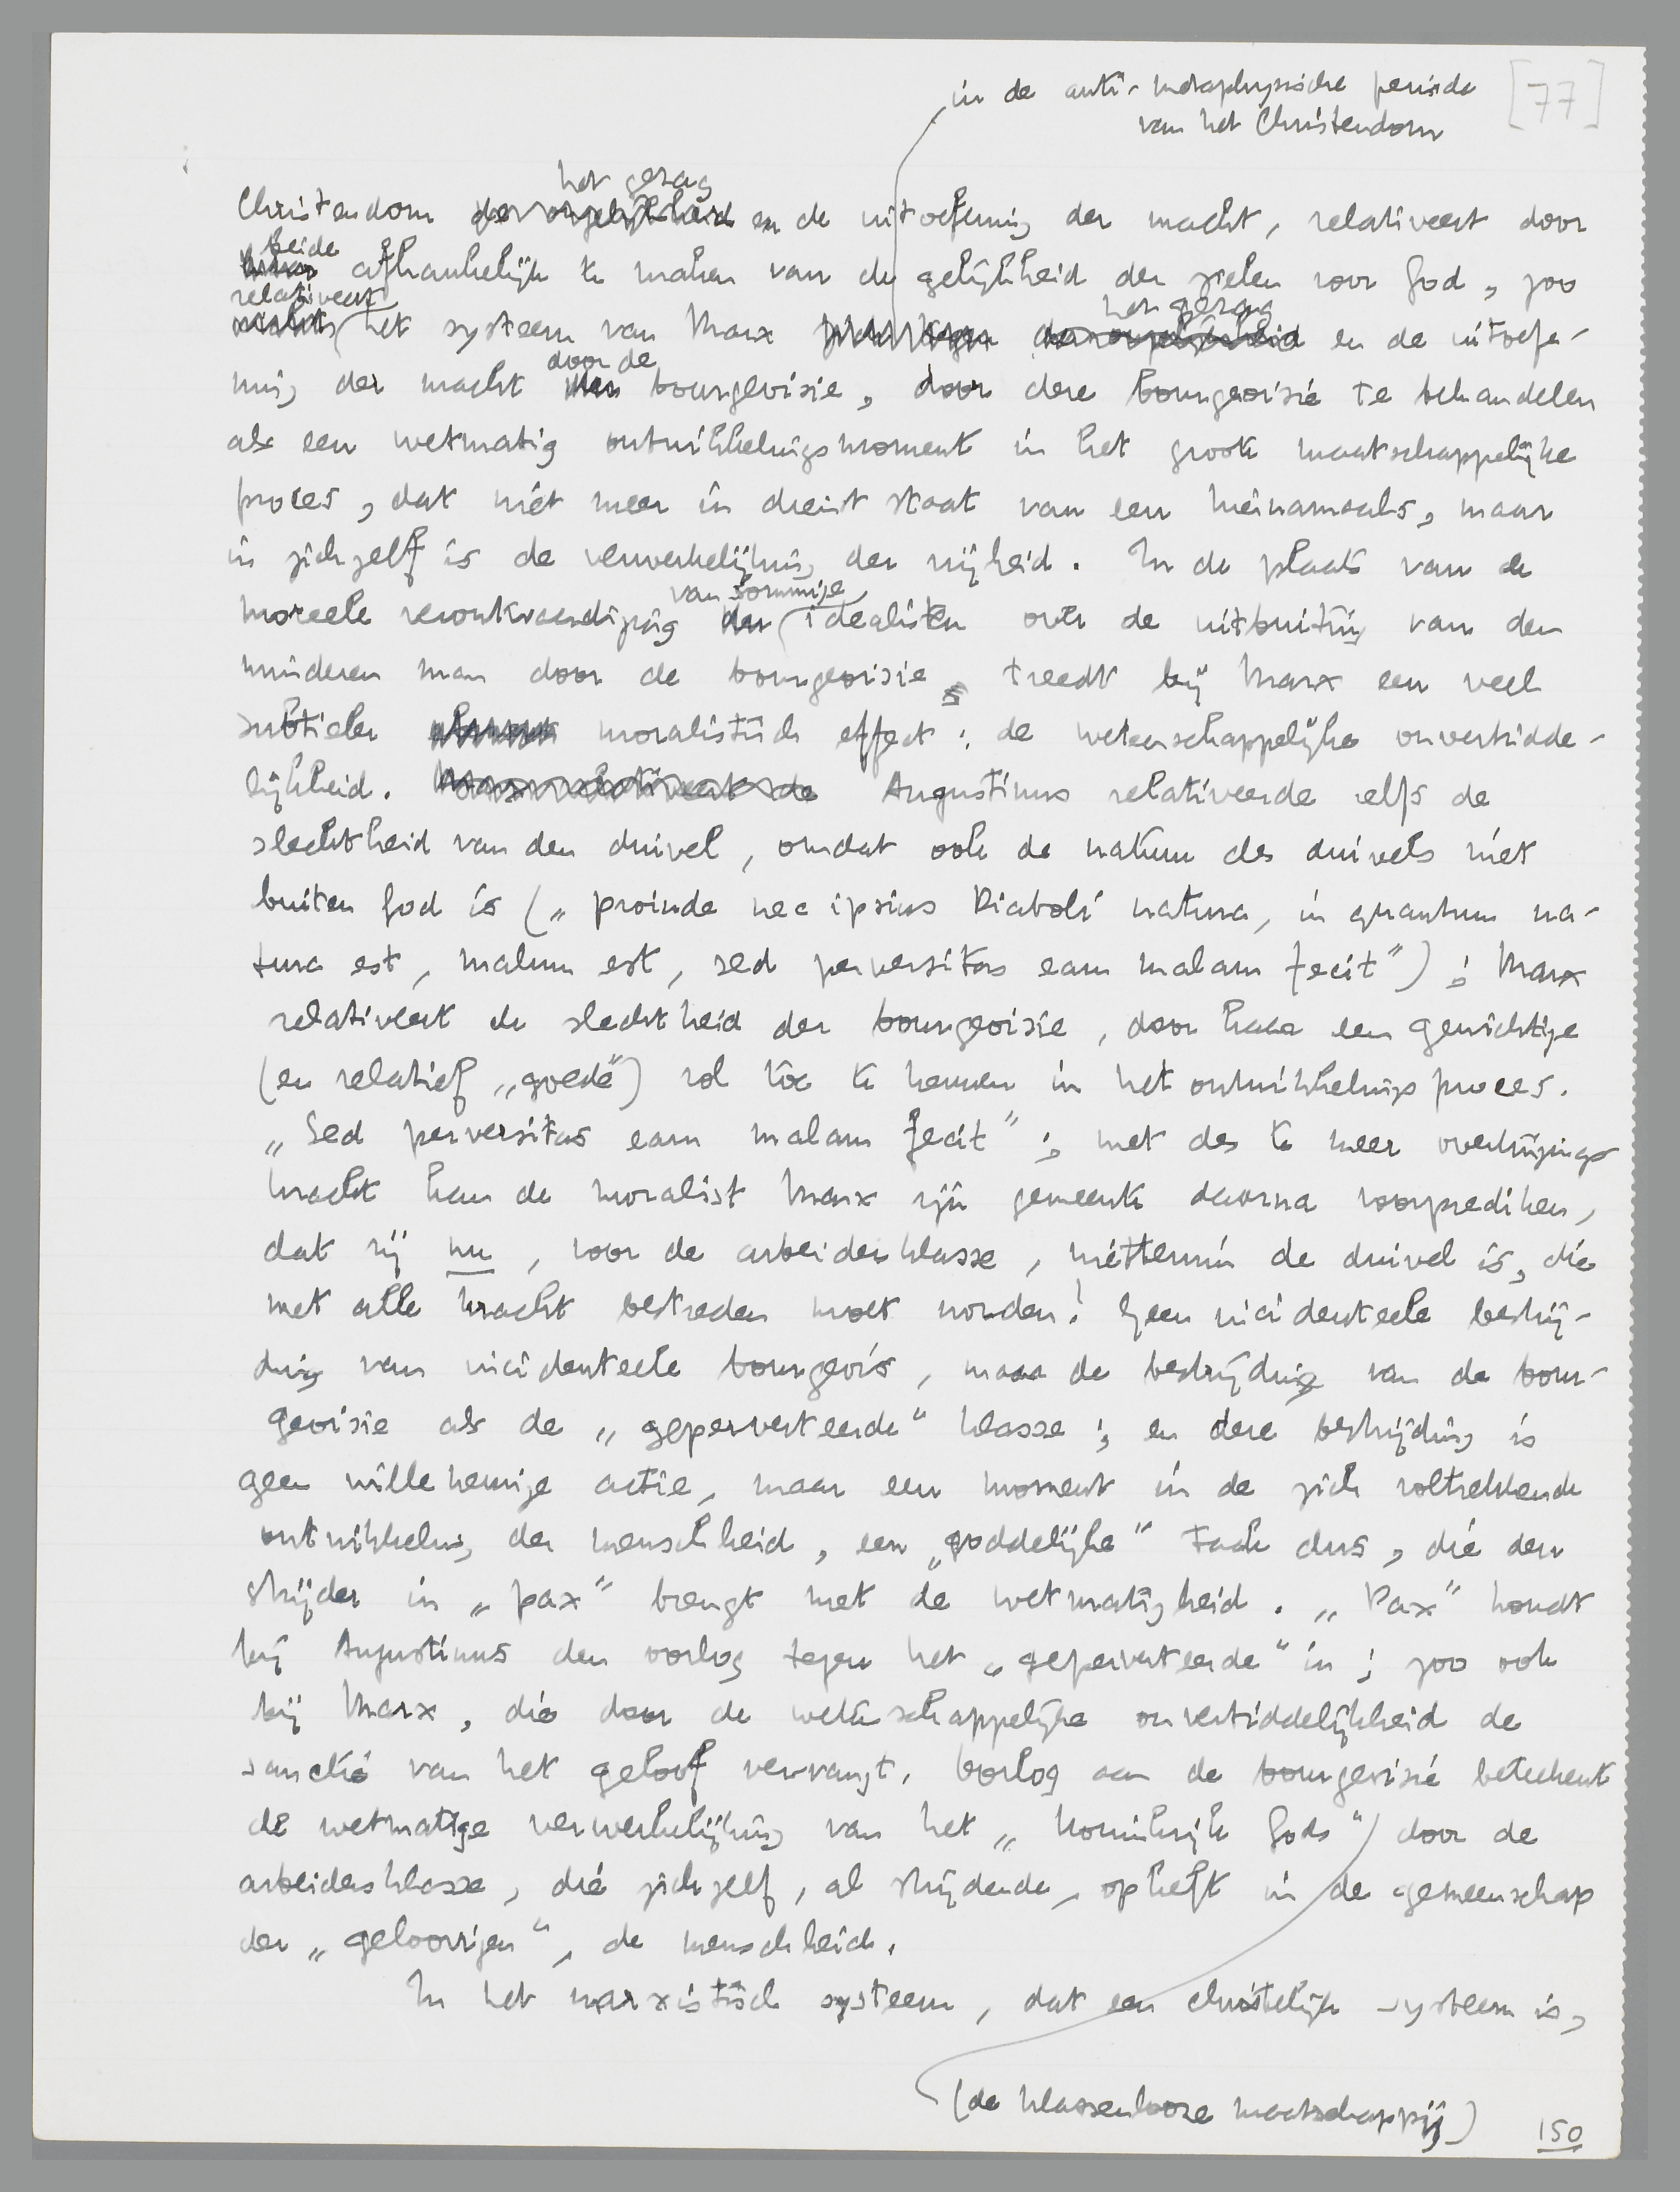 in de anti-metaphysische periode
van het Christendom
[77]
het gezag
Christendom de ongelijkheid en de uitoefening der macht, relativeert door
beide
afhankelijk te maken van de gelijkheid der zielen voor God, zoo
relativeert het gezag
het systeem van Marx de ongelijkheid en de uitoefe-
door de
ning der macht der bourgeoisie, door deze bourgeoisie te behandelen
als een wetmatig ontwikkelingsmoment in het groote maatschappelijke
proces, dat niet meer in dienst staat van een hiernamaals, maar
in zichzelf is de verwerkelijking der vrijheid. In de plaats van de
van sommige
moreele verontwaardiging der idealisten over de uitbuiting van den
minderen man door de bourgeoisie, treedt bij Marx een veel
subtieler moralistisch effect: de wetenschappelijke onvermidde-
lijkheid. Marx relativeert de Augustinus relativeerde zelfs de
slechtheid van den duivel, omdat ook de natuur des duivels niet
buiten God is („proinde nec ipsius Diaboli natura, in quantum na-
tura est, malum est, sed perversitas eam malam fecit"); Marx
relativeert de slechtheid der bourgeoisie, door haar een gewichtige
(en relatief „goede") rol toe te kennen in het ontwikkelingsproces.
„Sed perversitas eam malam fecit"; met des te meer overtuigings-
kracht kan de moralist Marx zijn gemeente daarna voorprediken,
dat zij nu, voor de arbeidersklasse, niettemin de duivel is, die
met alle kracht bestreden moet worden! Geen incidenteele bestrij-
ding van incidenteele bourgeois, maar de bestrijding van de bour-
geoisie als de „geperverteerde" klasse; en deze bestrijding is
geen willekeurige actie, maar een moment in de zich voltrekkende
ontwikkeling der menschheid, een „goddelijke" taak dus, die den
strijder in „pax" brengt met de wetmatigheid. „Pax" houdt
bij Augustinus den oorlog tegen het „geperverteerde" in; zoo ook
bij Marx, die door de wetenschappelijke onvermiddelijkheid de
sanctie van het geloof vervangt. Oorlog aan de bourgeoisie beteekent
de wetmatige verwerkelijking van het „koninkrijk Gods") door de
arbeidersklasse, die zichzelf, al strijdende, opheft in de gemeenschap
der „geloovigen", de menschheid.
In het marxistisch systeem, dat een christelijk systeem is,
(de klassenlooze maatschappij)
150